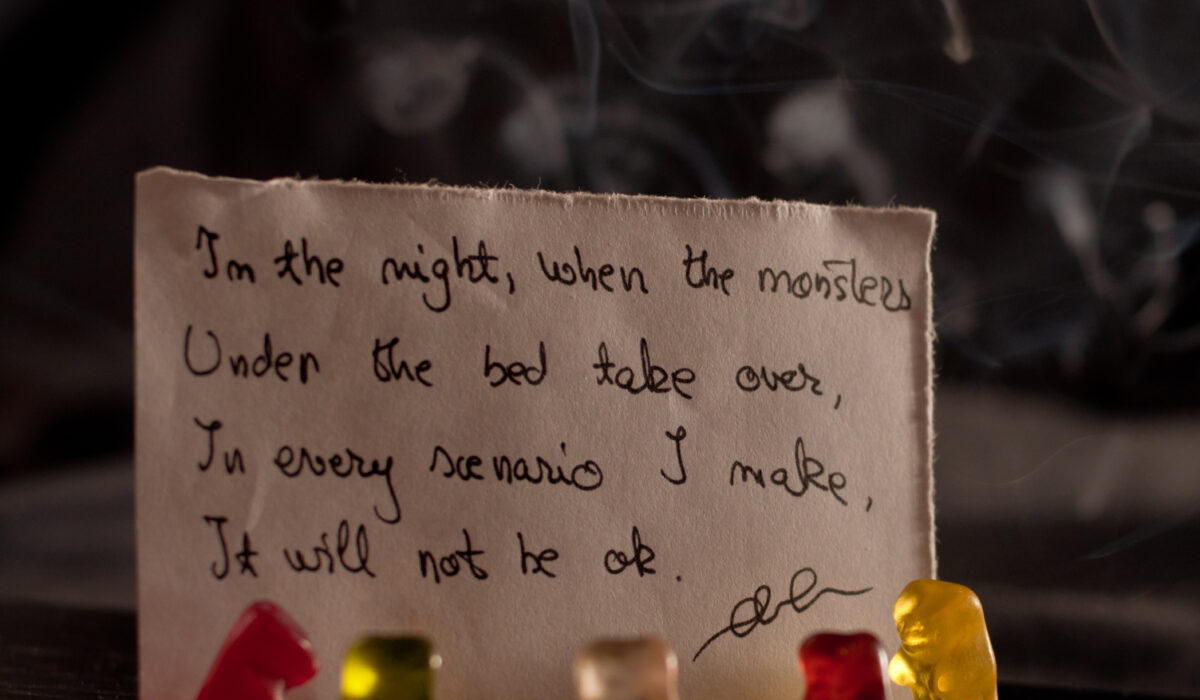 In the night, when the monsters
Under the bed take over,
In every scenario I make,
It will not be ok.